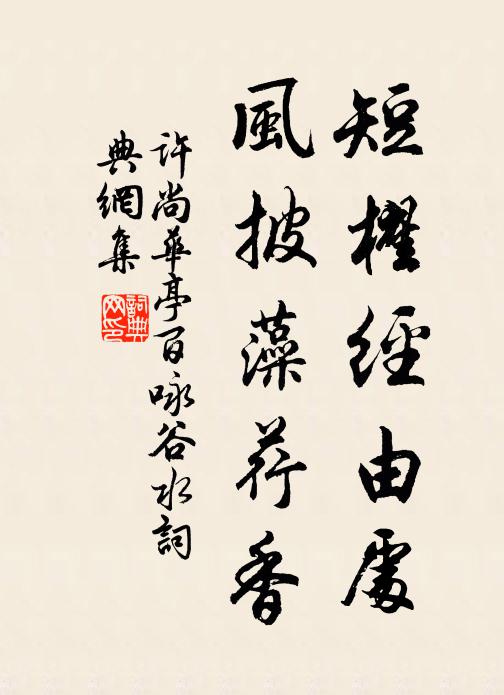 短櫂經由處
風披藻荇香
許尚華亭百咏谷水詞
典網集
詞典
网印